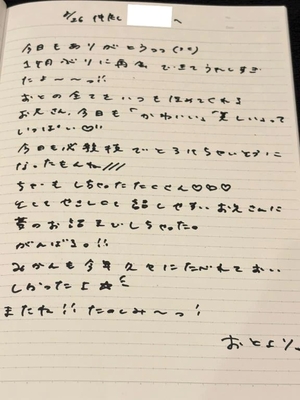 今日もありがとうっっ(°°)
1ヶ月ぶりに再会できてうれしすぎ
たよ〜〜っ!!
おとの全てをいつもほめてくれる
お兄さん、今日も「かわいい」「美しい」って
いっぱい♡!!
今日も必殺技でとろけちゃいそうに
なったもんね///
ちゅーもしちゃったたくさん♡♡♡
そしてやさしくて話しやすいお兄さんに
夢のお話までしちゃった。
がんばる。!!
みかんも今年久々にたべれておい
しかった♪☆
またね!! たのしみ〜っ!
おとより